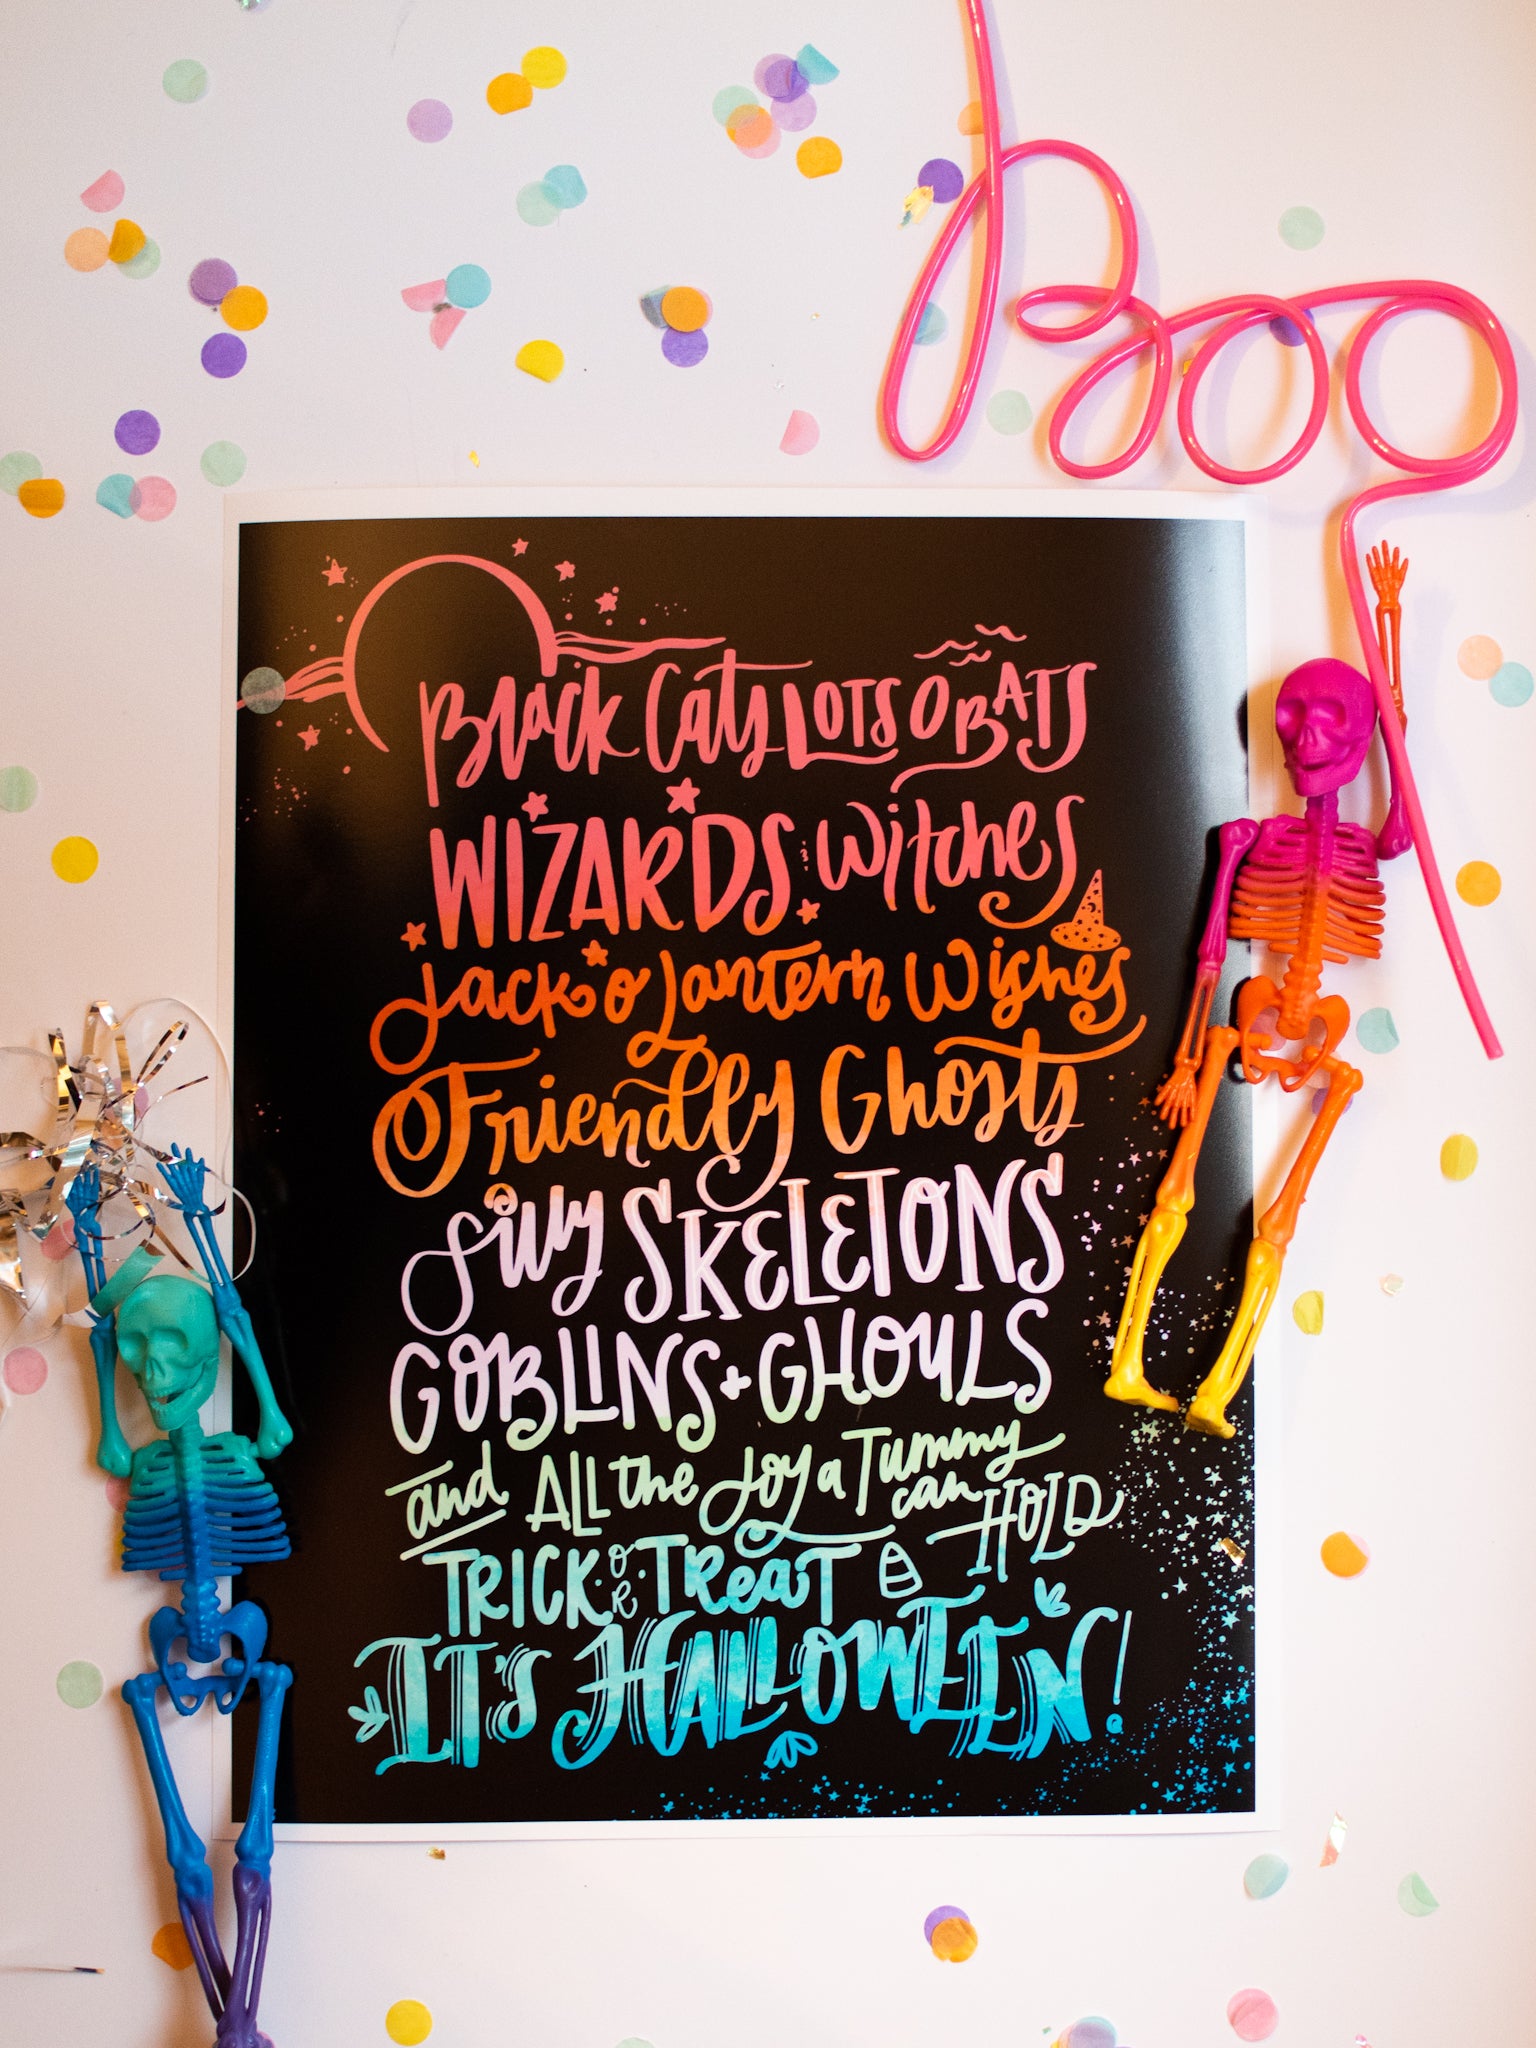 Boo
Black Cats LOTS O BATS
WIZARDS & Witches
Jack o Lantern Wishes
Friendly Ghosts
Silly SKELETONS
GOBLINS + GHOULS
and ALL the Joy a Tummy can HOLD
TRICK OR TREAT
IT'S HALLOWEEN!